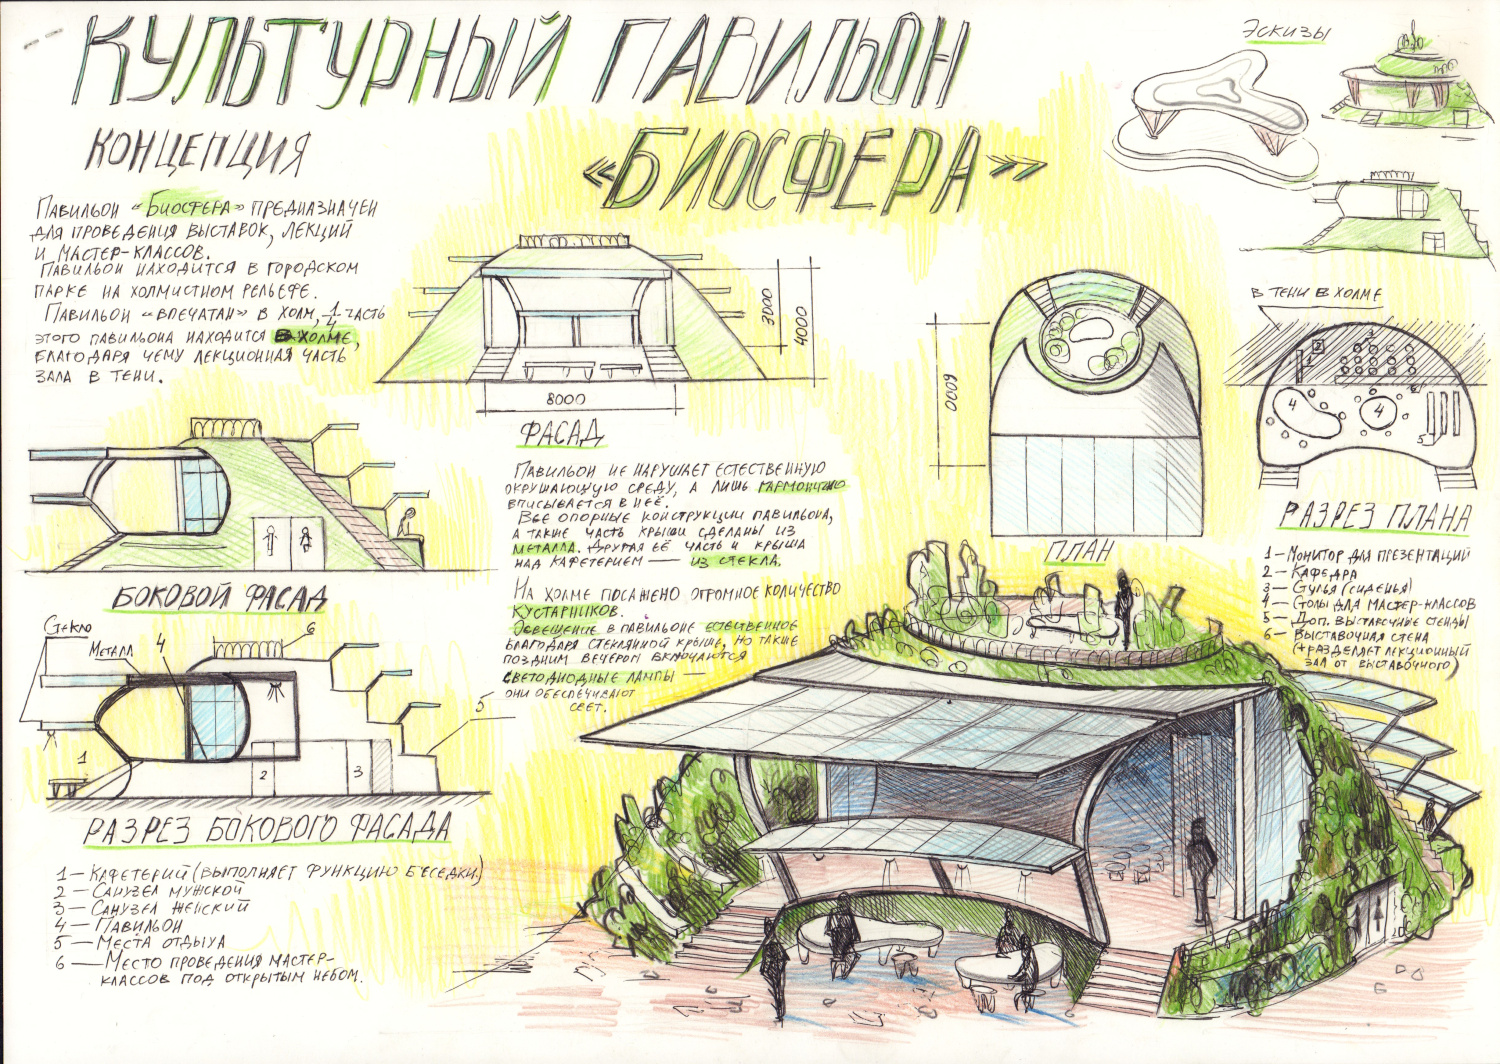 КУЛЬТУРНЫЙ ПАВИЛЬОН
«БИОСФЕРА»
КОНЦЕПЦИЯ
ПАВИЛЬОН «БИОСФЕРА» ПРЕДНАЗНАЧЕН
ДЛЯ ПРОВЕДЕНИЯ ВЫСТАВОК, ЛЕКЦИЙ
И МАСТЕР-КЛАССОВ.
ПАВИЛЬОН НАХОДИТСЯ В ГОРОДСКОМ
ПАРКЕ НА ХОЛМИСТНОМ РЕЛЬЕФЕ.
ПАВИЛЬОН «ВПЕЧАТАН» В ХОЛМ, 1/4 ЧАСТЬ
ЭТОГО ПАВИЛЬОНА НАХОДИТСЯ В ХОЛМЕ,
БЛАГОДАРЯ ЧЕМУ ЛЕКЦИОННАЯ ЧАСТЬ
ЗАЛА В ТЕНИ.
3000
4000
8000
ФАСАД
ПАВИЛЬОН НЕ НАРУШАЕТ ЕСТЕСТВЕННУЮ
ОКРУШАЮЩУЮ СРЕДУ, А ЛИШЬ ГАРМОНИЧНО
ВПИСЫВАЕТСЯ В НЕЁ.
ВСЕ ОПОРНЫЕ КОНСТРУКЦИИ ПАВИЛЬОНА,
А ТАКЖЕ ЧАСТЬ КРЫШИ СДЕЛАНЫ ИЗ
МЕТАЛЛА. ДРУГАЯ ЕЁ ЧАСТЬ И КРЫША
НАД КАФЕТЕРИЕМ — ИЗ СТЕКЛА.
НА ХОЛМЕ ПОСАЖЕНО ОГРОМНОЕ КОЛИЧЕСТВО
КУСТАРНИКОВ.
ОСВЕЩЕНИЕ В ПАВИЛЬОНЕ ЕСТЕСТВЕННОЕ
БЛАГОДАРЯ СТЕКЛЯННОЙ КРЫШЕ, НО ТАКЖЕ
ПОЗДНИМ ВЕЧЕРОМ ВКЛЮЧАЮТСЯ
СВЕТОДИОДНЫЕ ЛАМПЫ —
ОНИ ОБЕСПЕЧИВАЮТ
СВЕТ.
БОКОВОЙ ФАСАД
СТЕКЛО
МЕТАЛЛ
4
6
5
1
2
3
РАЗРЕЗ БОКОВОГО ФАСАДА
1 — КАФЕТЕРИЙ (ВЫПОЛНЯЕТ ФУНКЦИЮ БЕСЕДКИ)
2 — САНУЗЕЛ МУЖСКОЙ
3 — САНУЗЕЛ ЖЕНСКИЙ
4 — ПАВИЛЬОН
5 — МЕСТА ОТДЫХА
6 — МЕСТО ПРОВЕДЕНИЯ МАСТЕР-
КЛАССОВ ПОД ОТКРЫТЫМ НЕБОМ.
ЭСКИЗЫ
6000
ПЛАН
В ТЕНИ В ХОЛМЕ
1
2
3
6
4
4
5
РАЗРЕЗ ПЛАНА
1 — МОНИТОР ДЛЯ ПРЕЗЕНТАЦИЙ
2 — КАФЕДРА
3 — СТУЛЬЯ (СИДЕНЬЯ)
4 — СТОЛЫ ДЛЯ МАСТЕР-КЛАССОВ
5 — ДОП. ВЫСТАВОЧНЫЕ СТЕНДЫ
6 — ВЫСТАВОЧНАЯ СТЕНА
(+РАЗДЕЛЯЕТ ЛЕКЦИОННЫЙ
ЗАЛ ОТ ВЫСТАВОЧНОГО)